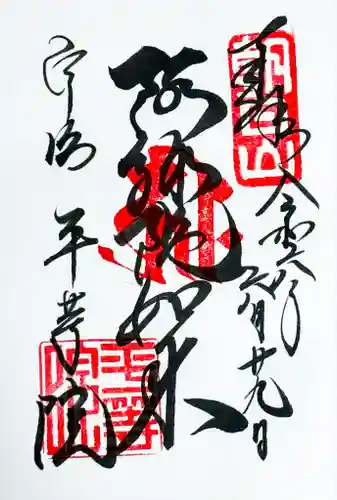 奉拝
令和六年
六月廿九日
阿弥陀如来
宇治
平等院
朝日山
平等院